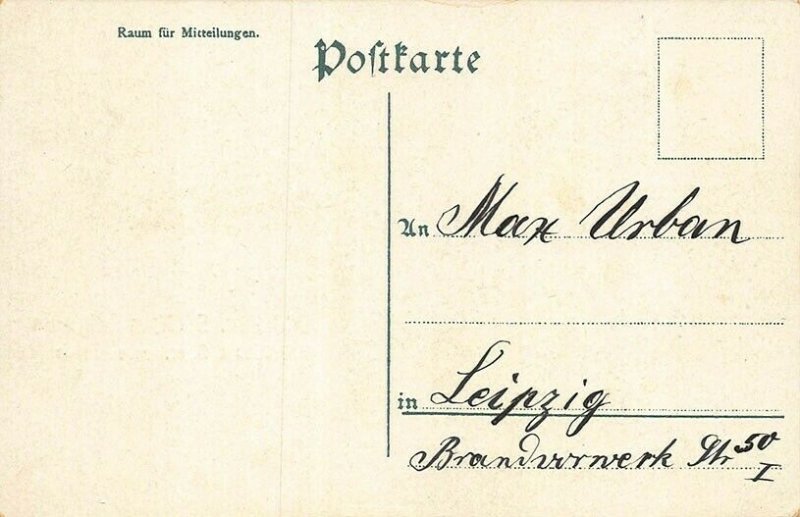 Raum für Mitteilungen.
Postkarte
An Max Urban
in Leipzig
Brandvorwerk Str 50
I